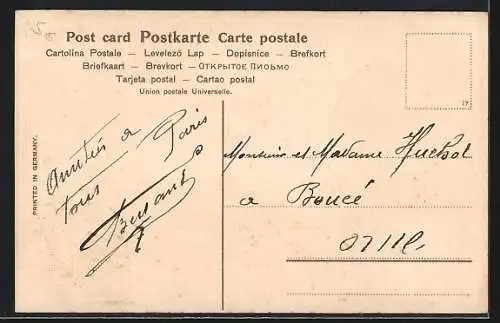 Post card Postkarte Carte postale
Cartolina Postale – Levelező Lap – Dopisnice – Brefkort
Briefkaart – Brevkort – ОТКРЫТОЕ ПИСЬМО
Tarjeta postal – Cartao postal
Union postale Universelle.
PRINTED IN GERMANY.
Amitiés a Paris
Tous
Monsieur et Madame
a Boucé
Orne